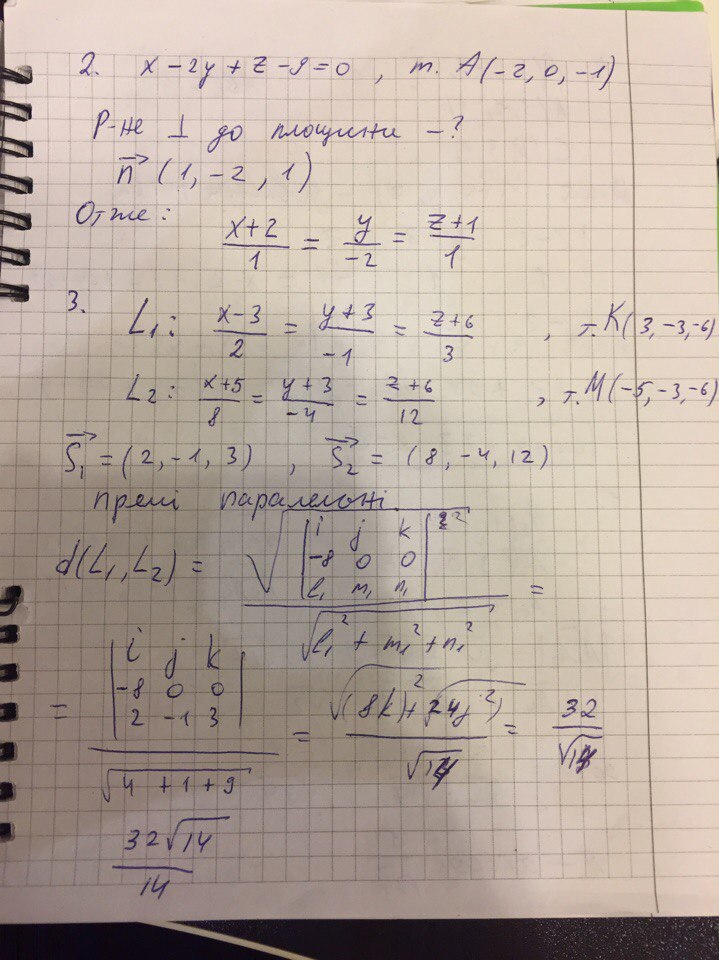 2. x - 2y + z - 9 = 0 , т. A(-2, 0, -1)
Р-не ⊥ до площини -?
n⃗ (1, -2, 1)
Отже:
(x+2)/1 = y/(-2) = (z+1)/1
3. L₁: (x-3)/2 = (y+3)/(-1) = (z+6)/3 , т. K(3, -3, -6)
L₂: (x+5)/8 = (y+3)/(-4) = (z+6)/12 , т. M(-5, -3, -6)
S₁⃗ = (2, -1, 3) , S₂⃗ = (8, -4, 12)
прямі паралельні.
d(L₁, L₂) = √(|i j k; -8 0 0; l₁ m₁ n₁|²) / √(l₁² + m₁² + n₁²) =
= |i j k; -8 0 0; 2 -1 3| / √(4 + 1 + 9) = √((8k)² + (24j)²) / √14 = 32/√14
32√14/14